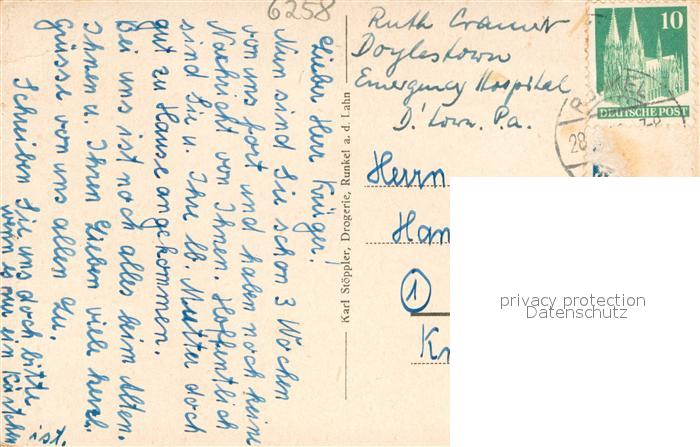 6258
Lieber Herr Krüger!
Nun sind Sie schon 3 Wochen
von uns fort und haben noch keine
Nachricht von Ihnen. Hoffentlich
sind Sie u. Ihre lb. Mutter doch
gut zu Hause angekommen.
Bei uns ist noch alles beim Alten.
Ihnen u. Ihren Lieben viele herzl.
Grüsse von uns allen
Schreiben Sie uns doch bitte,
wenn es nur ein Kärtchen
ist.
Karl Stöppler, Drogerie, Runkel a. d. Lahn
Ruth
Doylestown
Emergency Hospital
D'town. Pa.
10
DEUTSCHE POST
28
Herrn
Han
1
K
privacy protection
Datenschutz